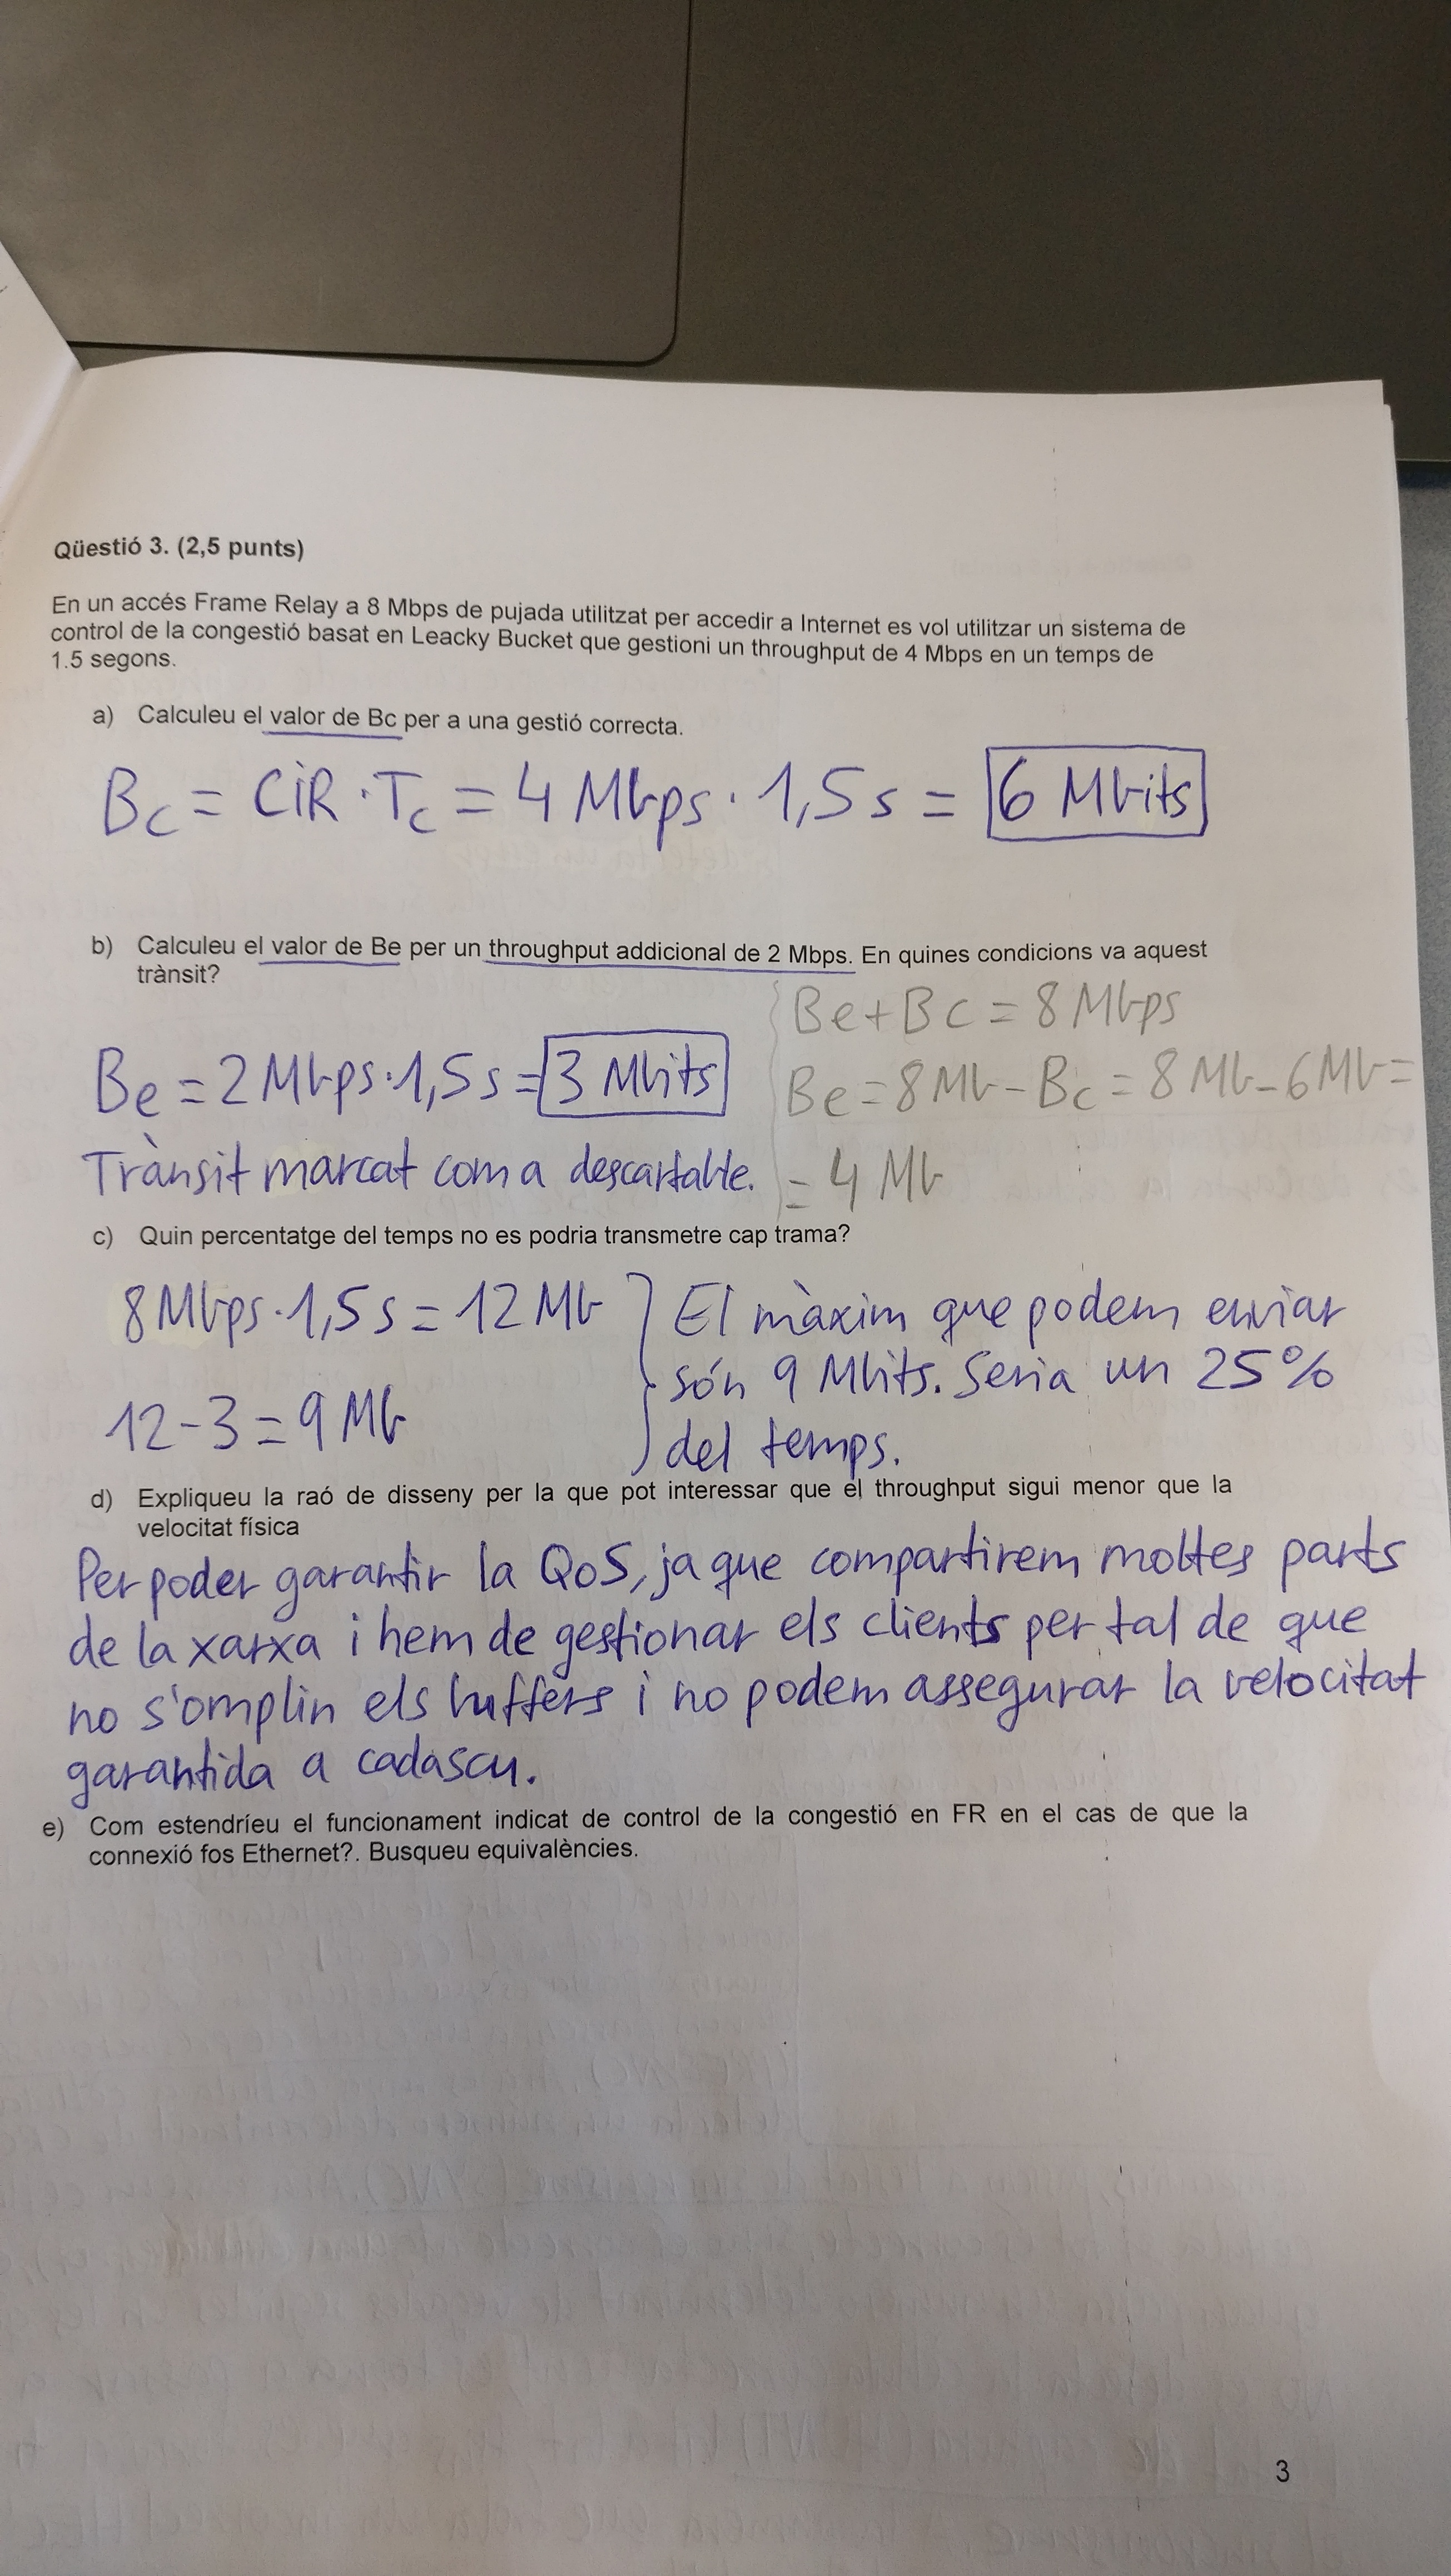 Qüestió 3. (2,5 punts)
En un accés Frame Relay a 8 Mbps de pujada utilitzat per accedir a Internet es vol utilitzar un sistema de
control de la congestió basat en Leacky Bucket que gestioni un throughput de 4 Mbps en un temps de
1.5 segons.
a) Calculeu el valor de Bc per a una gestió correcta.
Bc = CIR · Tc = 4 Mbps · 1,5 s = 6 Mbits
b) Calculeu el valor de Be per un throughput addicional de 2 Mbps. En quines condicions va aquest
trànsit?
Be + Bc = 8 Mbps
Be = 2 Mbps · 1,5 s = 3 Mbits
Be = 8 Mb - Bc = 8 Mb - 6 Mb =
Trànsit marcat com a descartable.
= 4 Mb
c) Quin percentatge del temps no es podria transmetre cap trama?
8 Mbps · 1,5 s = 12 Mb
El màxim que podem enviar
són 9 Mbits. Seria un 25%
12 - 3 = 9 Mb
del temps.
d) Expliqueu la raó de disseny per la que pot interessar que el throughput sigui menor que la
velocitat física
Per poder garantir la QoS, ja que compartirem moltes parts
de la xarxa i hem de gestionar els clients per tal de que
no s'omplin els buffers i no podem assegurar la velocitat
garantida a cadascu.
e) Com estendríeu el funcionament indicat de control de la congestió en FR en el cas de que la
connexió fos Ethernet?. Busqueu equivalències.
3